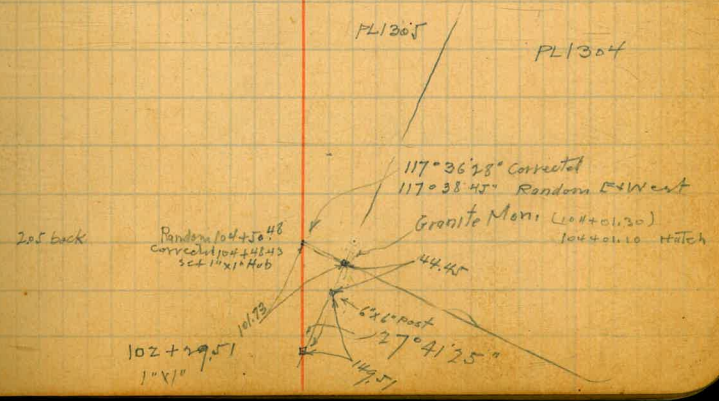 PL1305
PL1304
117° 36' 28" Corrected
117° 38' 45" Random E+West
Granite Mon. (104+01.30)
104+01.10 Hatch
205 back
Random 104+50.48
Corrected 104+48.43
Set 1"x1" Hub
44.45
101.73
6"x6" Post
127° 41' 25"
102 + 29.51
1"x1"
149.51